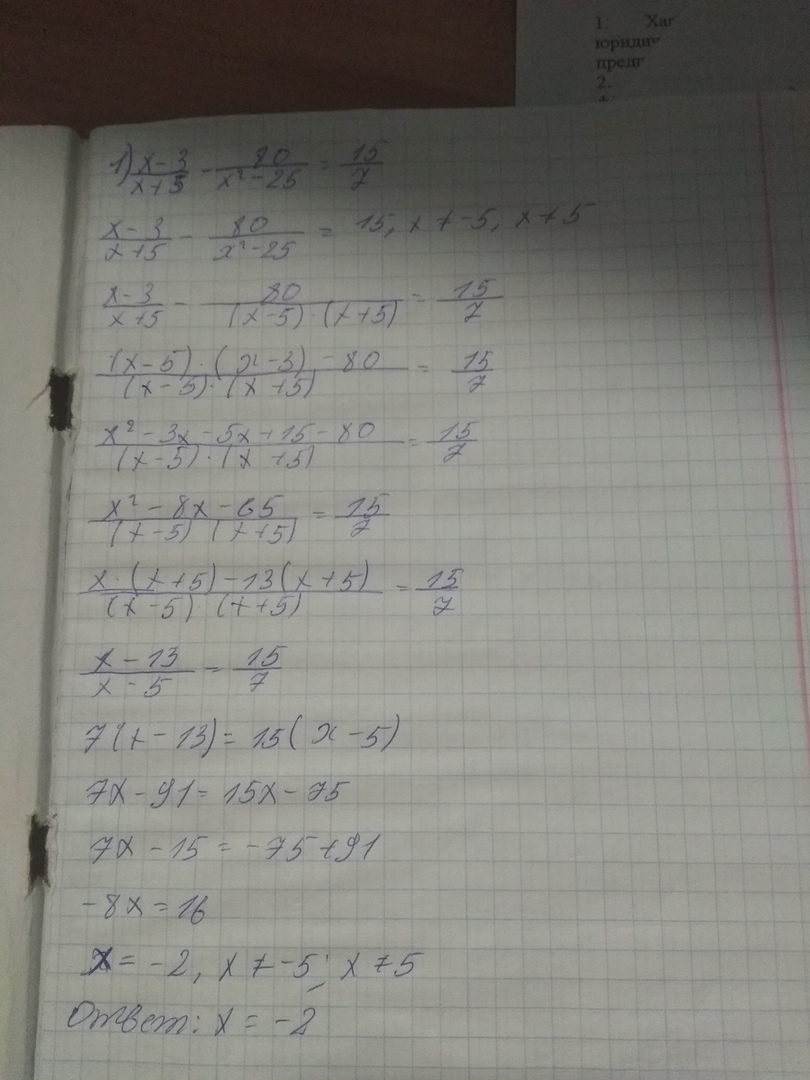 1. Хаг
юриди
предг
2.
1) x-3/x+5 - 80/x²-25 = 15/7
x-3/x+5 - 80/x²-25 = 15, x ≠ -5, x ≠ 5
x-3/x+5 - 80/(x-5)·(x+5) = 15/7
(x-5)·(x-3)-80/(x-5)·(x+5) = 15/7
x²-3x-5x+15-80/(x-5)·(x+5) = 15/7
x²-8x-65/(x-5)(x+5) = 15/7
x·(x+5)-13(x+5)/(x-5)·(x+5) = 15/7
x-13/x-5 = 15/7
7(x-13)=15(x-5)
7x-91=15x-75
7x-15=-75+91
-8x=16
x=-2, x ≠ -5; x ≠ 5
Ответ: x = -2